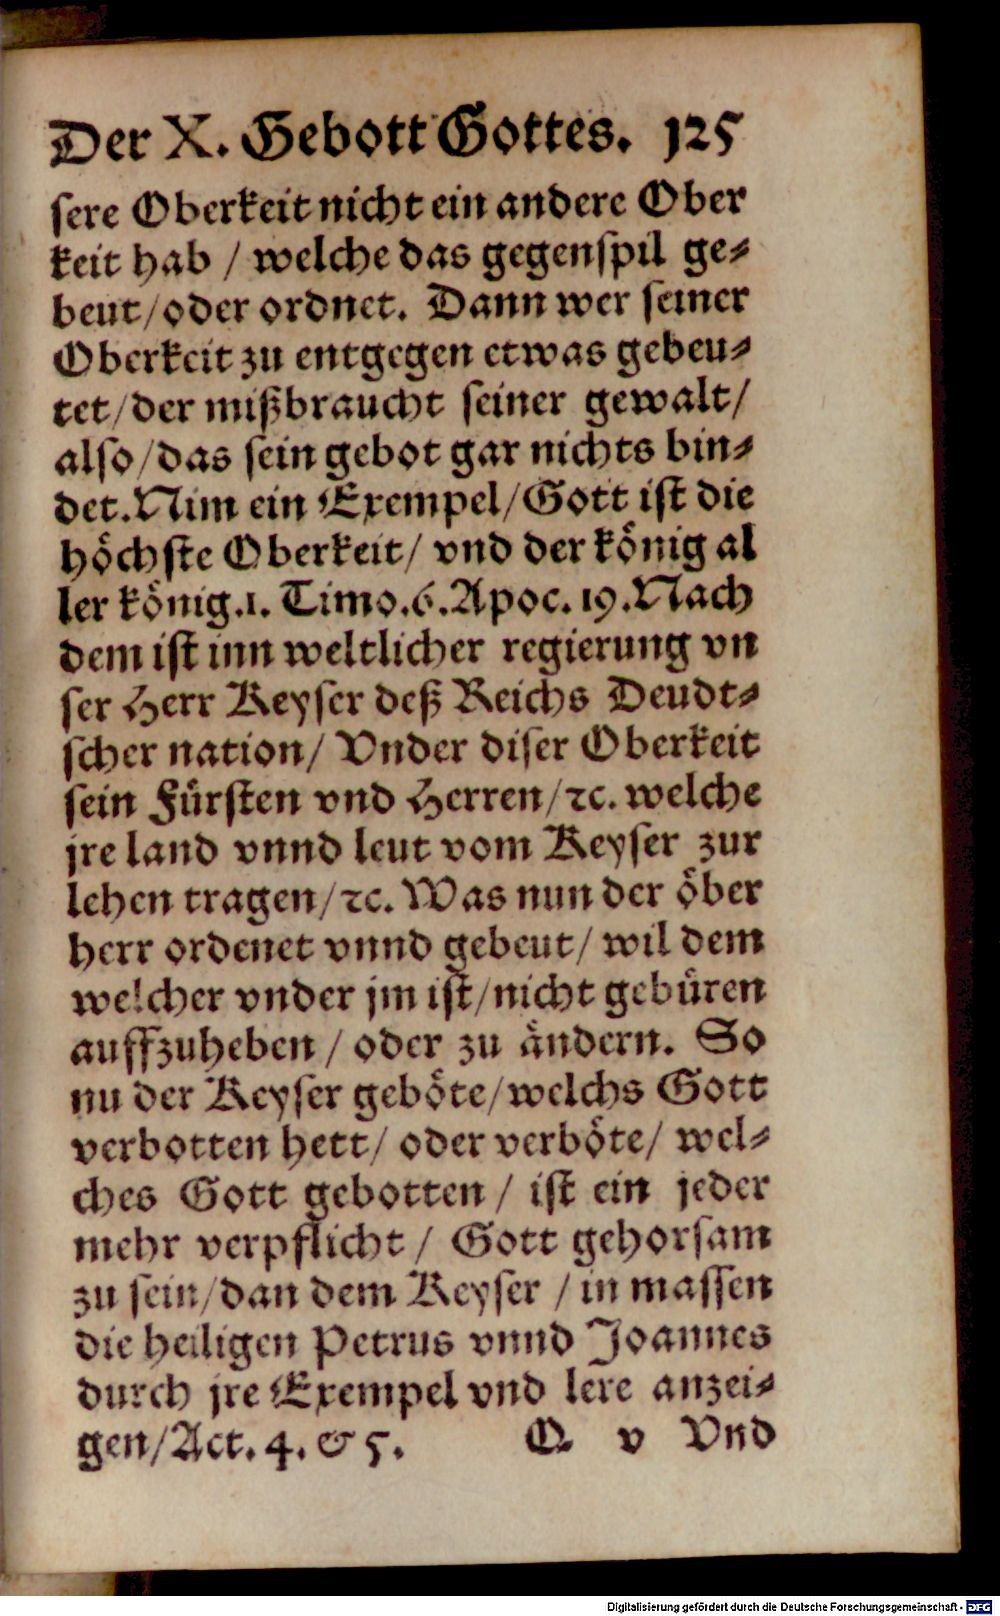 Der X. Gebott Gottes. 125
sere Oberkeit nicht ein andere Ober
keit hab / welche das gegenspil ge⸗
beut/oder ordnet. Dann wer seiner
Oberkeit zu entgegen etwas gebeu⸗
tet/der mißbraucht seiner gewalt/
also/das sein gebot gar nichts bin⸗
det.Nim ein Exempel/Gott ist die
höchste Oberkeit/ vnd der könig al
ler könig.1. Timo.6.Apoc.19.Nach
dem ist inn weltlicher regierung vn
ser Herr Keyser deß Reichs Deudt⸗
scher nation/ Vnder diser Oberkeit
sein Fürsten vnd Herren/ꝛc. welche
jre land vnnd leut vom Keyser zur
lehen tragen/ꝛc. Was nun der öber
herr ordenet vnnd gebeut/ wil dem
welcher vnder jm ist/nicht gebüren
auffzuheben / oder zu ändern. So
nu der Keyser geböte/welchs Gott
verbotten hett/ oder verböte/ wel⸗
ches Gott gebotten / ist ein jeder
mehr verpflicht / Gott gehorsam
zu sein/dan dem Keyser / in massen
die heiligen Petrus vnnd Joannes
durch jre Exempel vnd lere anzei⸗
gen/Act. 4. & 5. Q v Vnd
Digitalisierung gefördert durch die Deutsche Forschungsgemeinschaft - DFG